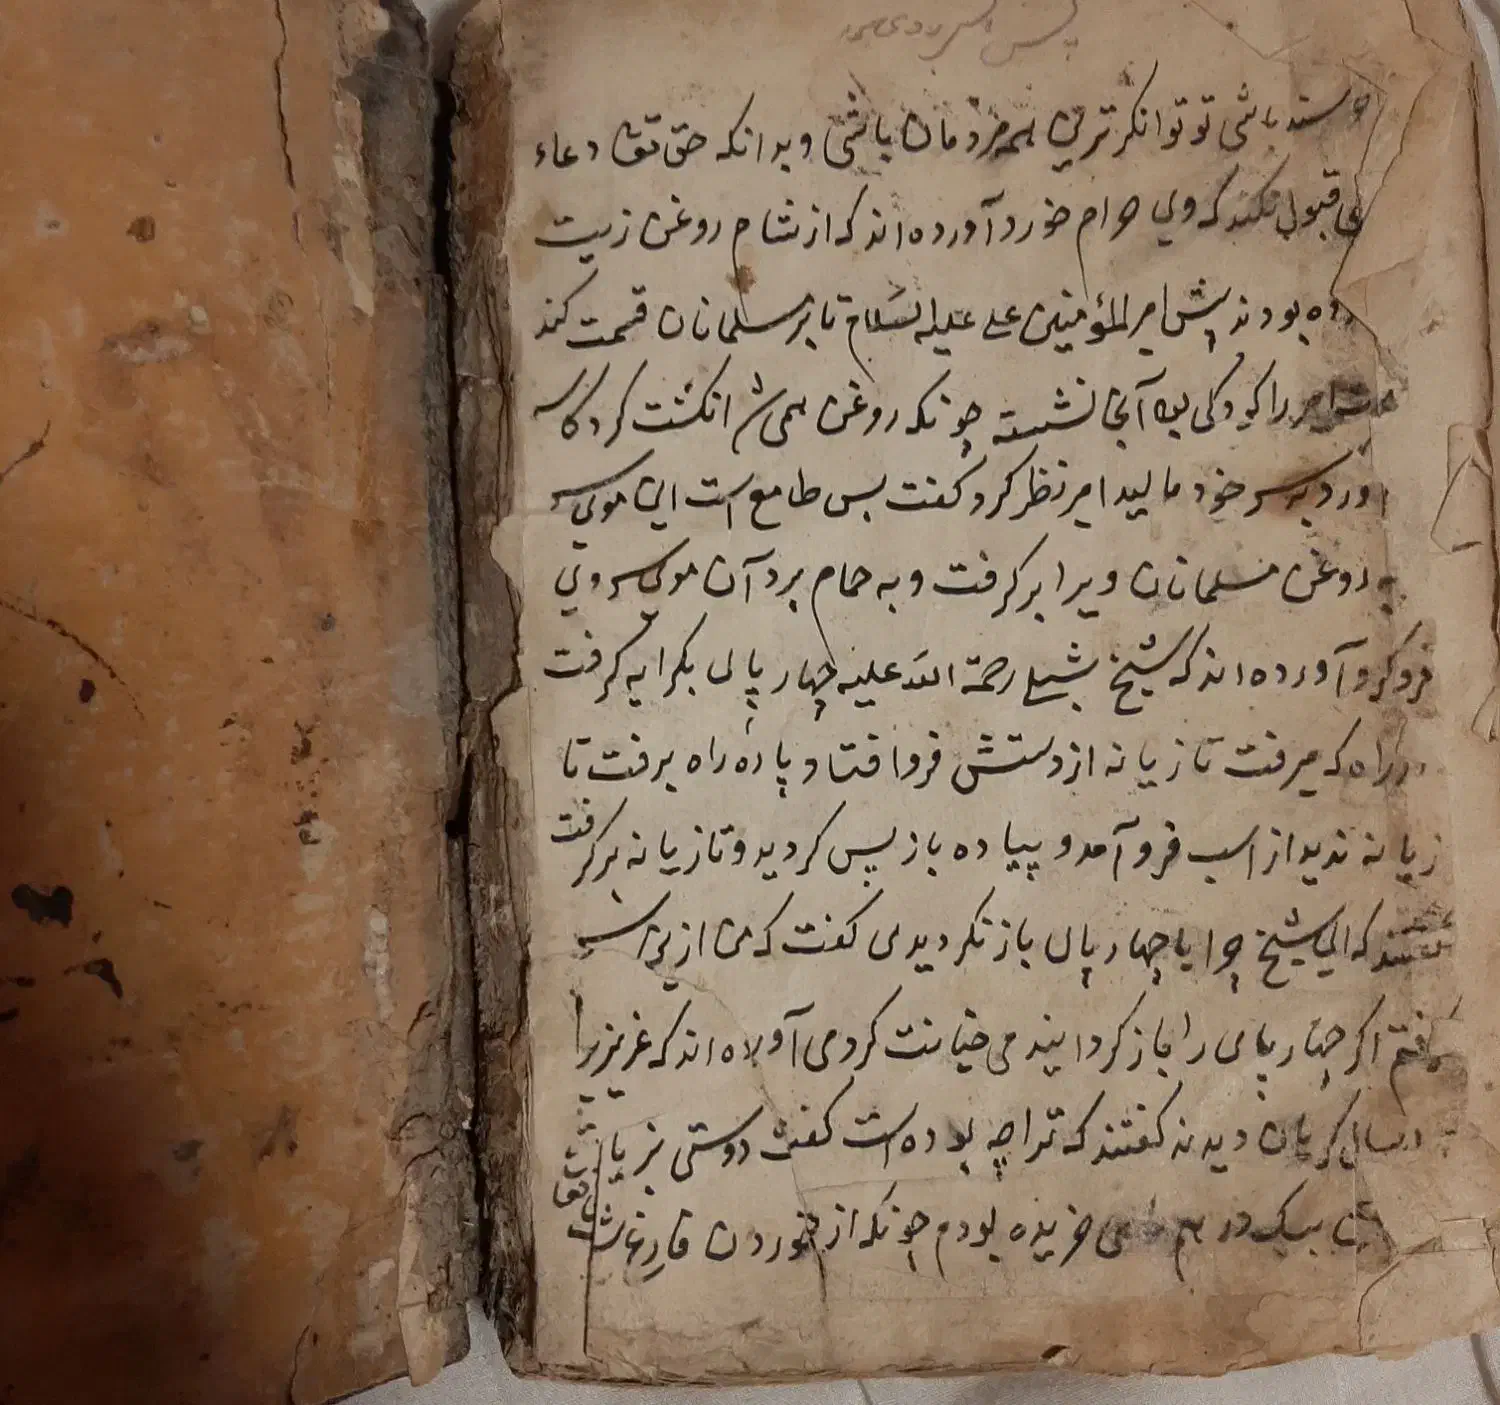 باشی تو توانکرترین همه مردمان باشی و بدانکه حق تعا دعاء
قبول نکند که وی حرام خورد آورده اند که از شام روغن زیت
ده بودند پیش امیرالمؤمنین علی علیه السلام تا بر مسلمانان قسمت کند
را کودکی بود آنجا نشسته چونکه روغن انکشت کرد کاسه
اورد به سر خود مالید امیر نظر کرد کفت بس طامع است این موی سر
به روغن مسلمانان ویرا بر کرفت و به حمام برد آن موی سر وی
فرو کرد آورده اند که شیخ شبلی رحمة الله علیه چهار پای بکرایه کرفت
در راه که میرفت تازیانه از دستش فرو افتاد پاره راه برفت تا
زیانه ندید از اسب فرو آمد و پیاده باز پس کردید و تازیانه برکرفت
کفتند که ای شیخ چرا با چهار پای باز نکردیدی کفت که من از پی اسب
اکر چهار پای را باز کردانیدمی خیانت کردمی آورده اند که عزیزیرا
کریان دیدند کفتند که ترا چه بوده است کفت دوستی بزیارت
بیک درهم خریده بودم چونکه از خوردن فارغ شد